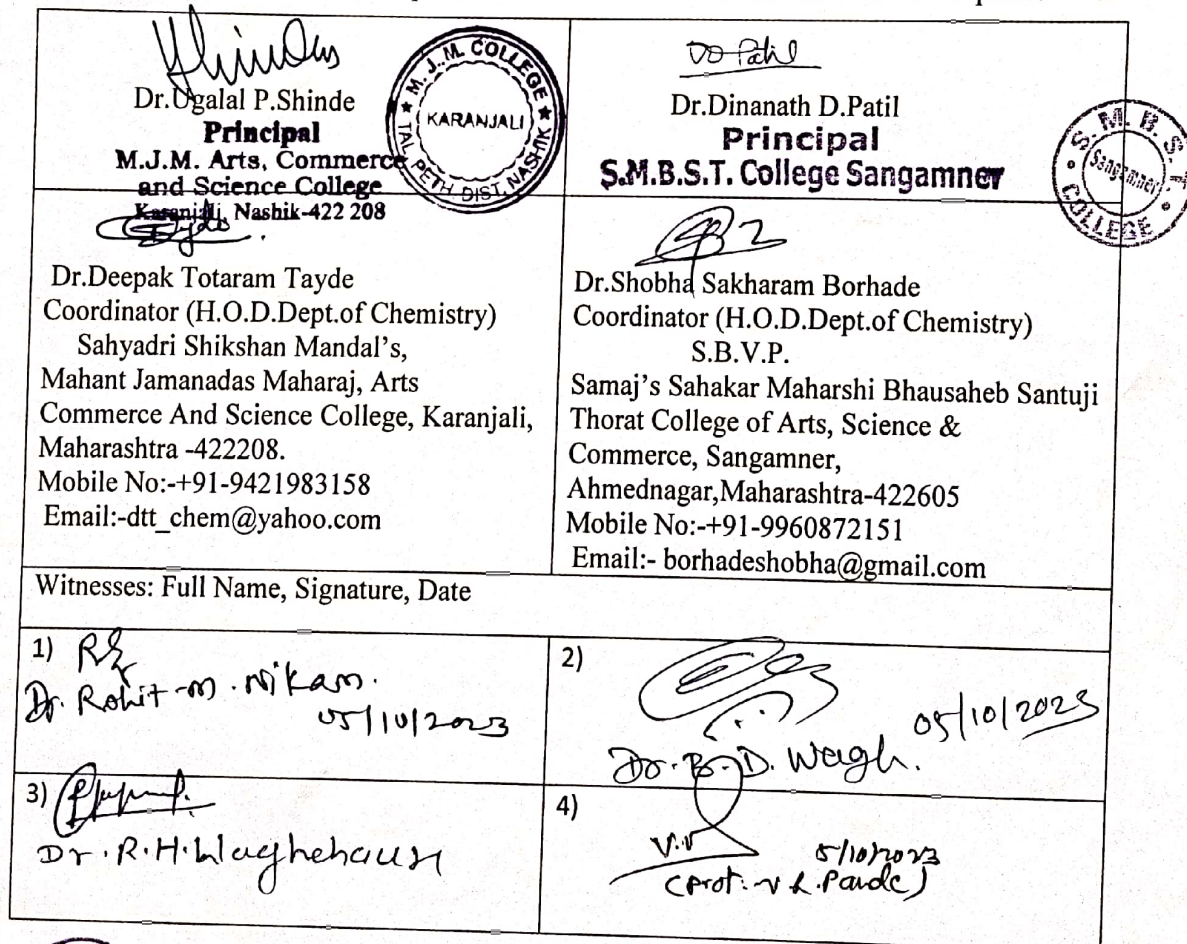 Dr.Ugalal P.Shinde
Principal
M.J.M. Arts, Commerce
and Science College
Karanjali, Nashik-422 208
M. J. M. COLLEGE
KARANJALI
TAL. PETH. DIST. NASHIK
DD Patil
Dr.Dinanath D.Patil
Principal
S.M.B.S.T. College Sangamner
S. M. B. S. T.
Sangamner
COLLEGE
Dr.Deepak Totaram Tayde
Coordinator (H.O.D.Dept.of Chemistry)
Sahyadri Shikshan Mandal's,
Mahant Jamanadas Maharaj, Arts
Commerce And Science College, Karanjali,
Maharashtra -422208.
Mobile No:-+91-9421983158
Email:-dtt_chem@yahoo.com
Dr.Shobha Sakharam Borhade
Coordinator (H.O.D.Dept.of Chemistry)
S.B.V.P.
Samaj's Sahakar Maharshi Bhausaheb Santuji
Thorat College of Arts, Science &
Commerce, Sangamner,
Ahmednagar,Maharashtra-422605
Mobile No:-+91-9960872151
Email:- borhadeshobha@gmail.com
Witnesses: Full Name, Signature, Date
1)
Dr. Rohit-M. Nikam.
05/10/2023
2)
05/10/2023
Dr. B. D. Wagh.
3)
Dr. R.H.
4)
5/10/2023
(Prof.